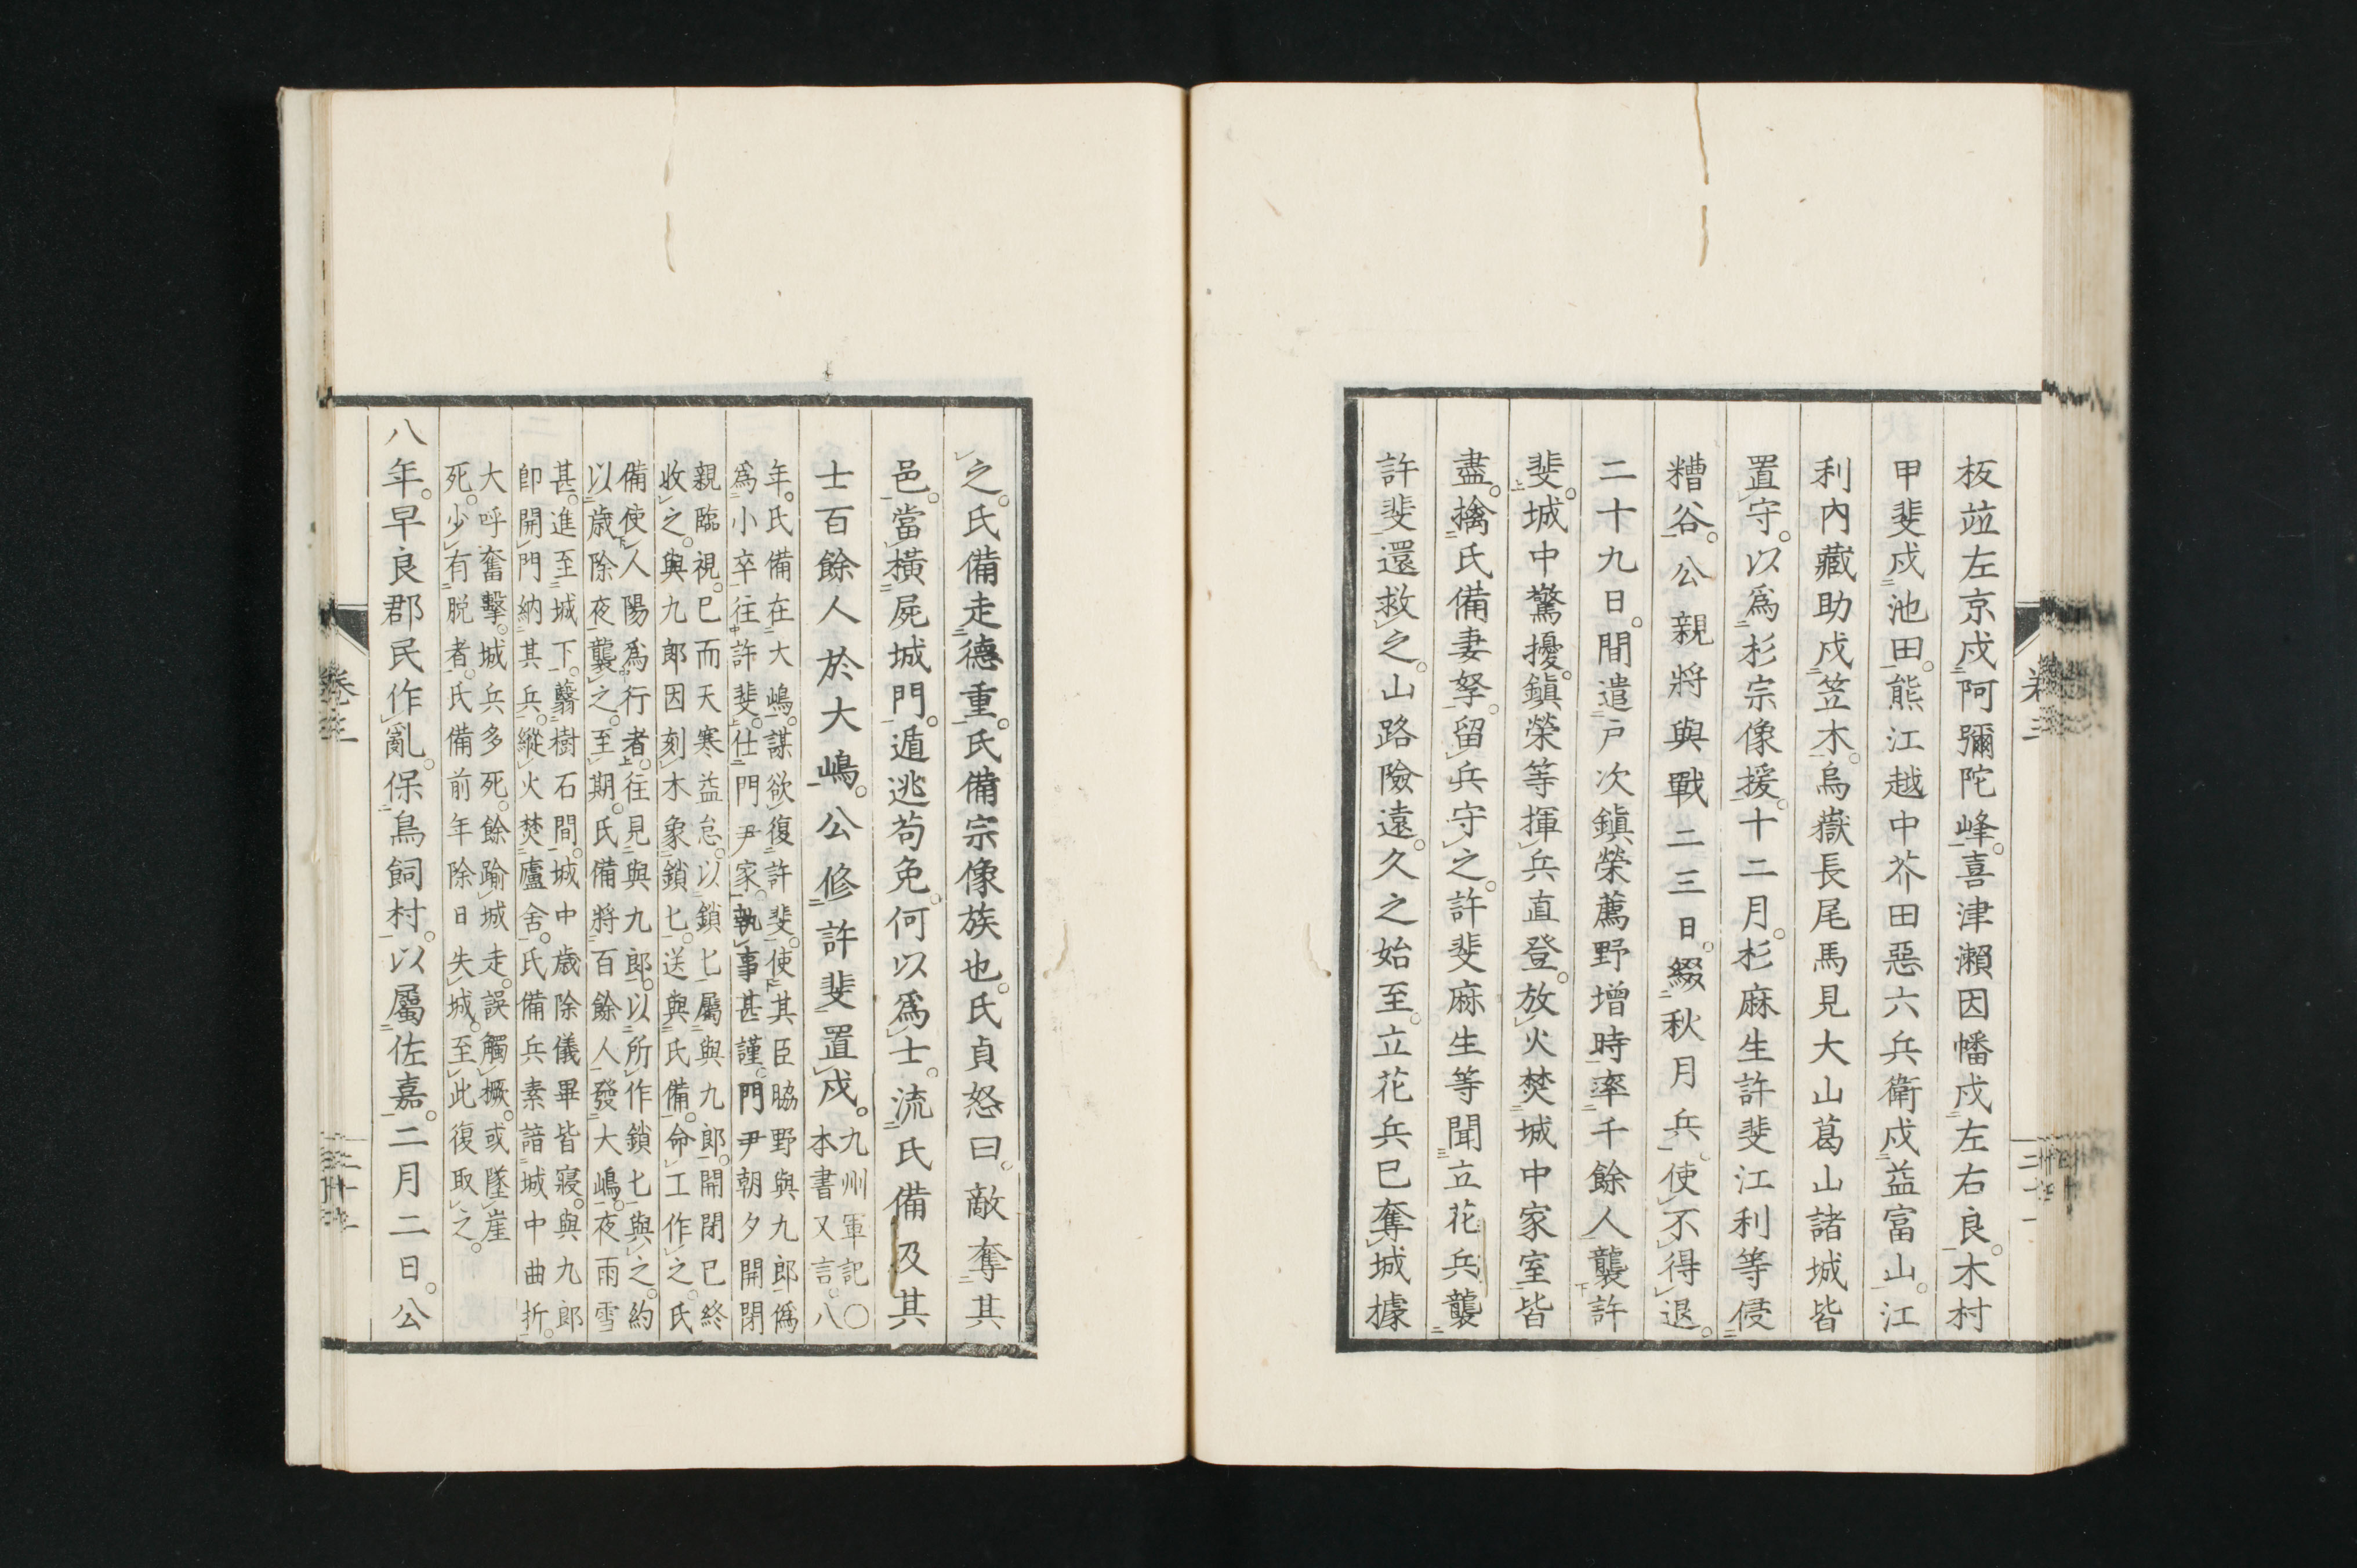 板竝左京戍阿彌陀峰。喜津瀬因幡戍左右良。木村
甲斐戍池田。熊江越中芥田惡六兵衛戍益富山。江
利內藏助戍笠木。烏嶽長尾馬見大山葛山諸城皆
置守。以爲杉宗像援。十二月。杉麻生許斐江利等侵
糟谷。公親將與戰二三日。綴秋月兵。使不得退。
二十九日。間遣戸次鎭榮薦野增時率千餘人襲許
斐。城中驚擾。鎭榮等揮兵直登。放火焚城中家室皆
盡。擒氏備妻孥。留兵守之。許斐麻生等聞立花兵襲
許斐還救之。山路險遠。久之始至。立花兵已奪城據
之。氏備走德重。氏備宗像族也。氏貞怒曰。敵奪其
邑。當橫屍城門。遁逃苟免。何以爲士。流氏備及其
士百餘人於大嶋。公修許斐置戍。
九州軍記〇
本書又言。八
年。氏備在大嶋。謀欲復許斐。使其臣脇野與九郎僞
爲小卒往許斐。仕門尹家。執事甚謹。門尹朝夕開閉
親臨視。已而天寒益怠。以鎖匕屬與九郎。開閉已終
收之。與九郎因刻木象鎖匕。送與氏備。命工作之。氏
備使人陽爲行者。往見與九郎。以所作鎖匕與之。約
以歳除夜襲之。至期。氏備將百餘人發大嶋。夜雨雪
甚。進至城下。翳樹石間。城中歳除儀畢皆寢。與九郎
卽開門納其兵。縱火焚廬舍。氏備兵素諳城中曲折。
大呼奮擊。城兵多死。餘踰城走。誤觸橛。或墜崖
死。少有脱者。氏備前年除日失城。至此復取之。
八年。早良郡民作亂。保鳥飼村。以屬佐嘉。二月二日。公
卷三